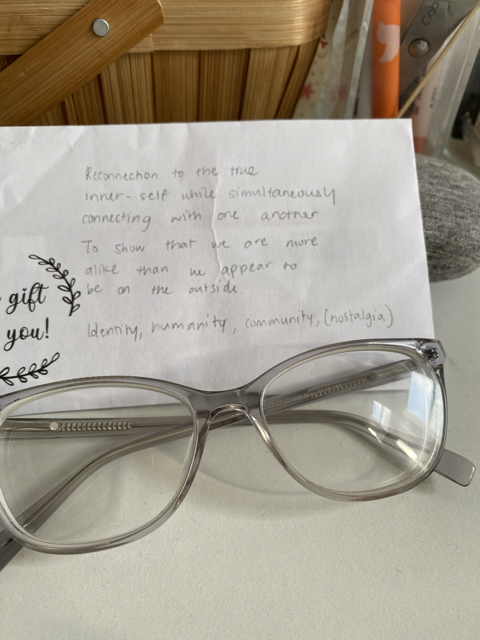 Reconnection to the true
inner-self while simultaneously
connecting with one another
To show that we are more
alike than we appear to
be on the outside
Identity, humanity, community, (nostalgia)
gift
you!